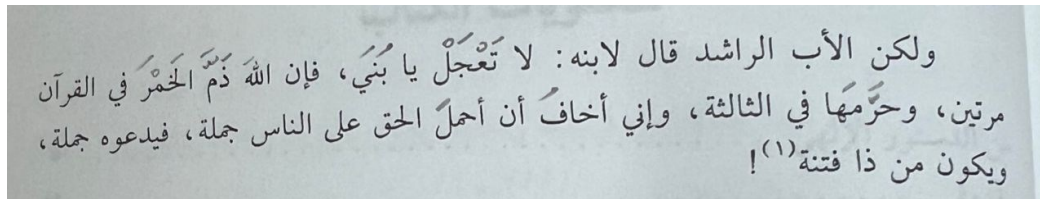 ولكن الأب الراشد قال لابنه: لا تَعْجَلْ يا بُنَي، فإن اللهَ ذَمَّ الخَمْرَ في القرآن
مرتين، وحرَّمَها في الثالثة، وإني أخافُ أن أحملَ الحق على الناس جملة، فيدعوه جملة،
ويكون من ذا فتنة(١)!